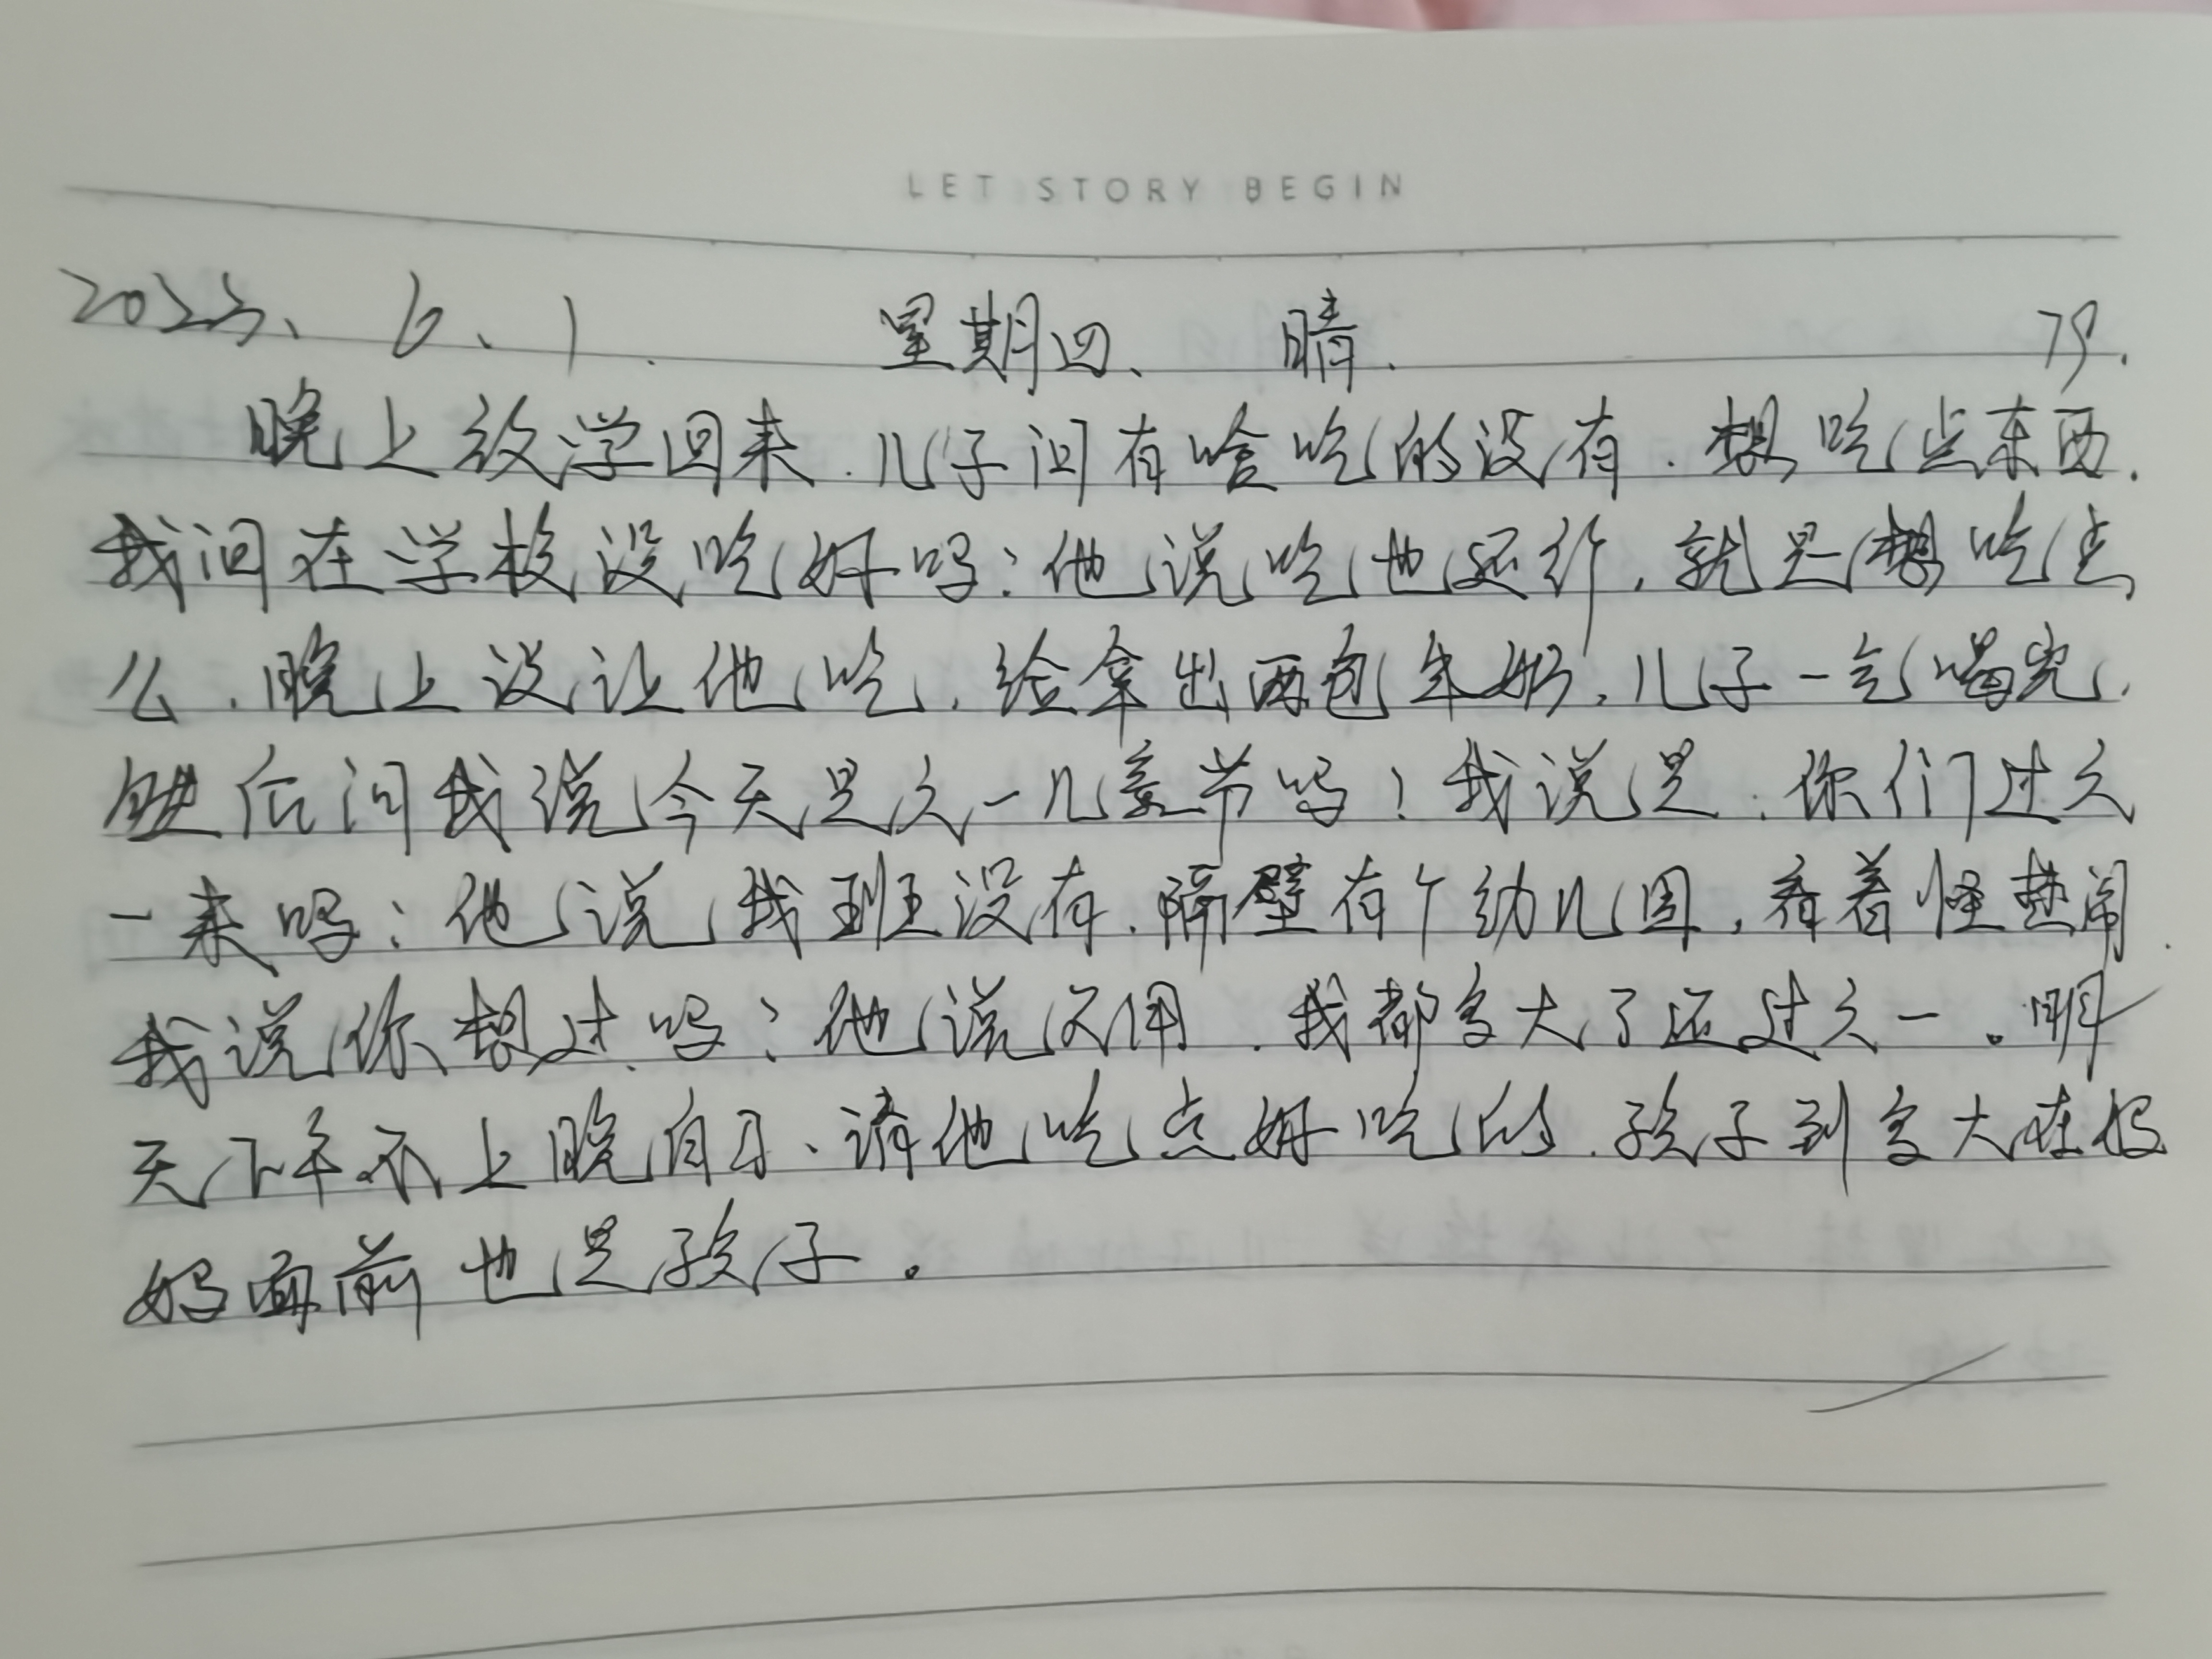 LET STORY BEGIN
2023、6、1. 星期四、 晴. 79.
晚上放学回来.儿子问有啥吃的没有.想吃点东西.
我问在学校没吃好吗?他说吃也还行,就是想吃点
么.晚上没让他吃.给拿出两包牛奶,儿子一气喝完.
然后问我说今天是六一儿童节吗?我说是.你们过六
一来吗?他说我班没有.隔壁有个幼儿园,看着怪热闹.
我说你想过吗?他说不用.我都多大了还过六一。明
天下午不上晚自习、请他吃点好吃的.孩子到多大在妈
妈面前也是孩子。